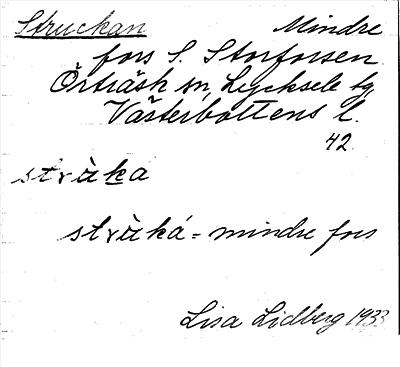 Struckan Mindre
fors S. Storforsen
Örträsk sn, Lycksele tg
Västerbottens l.
42
stràka
stràká = mindre fors
Lisa Lidberg 1933